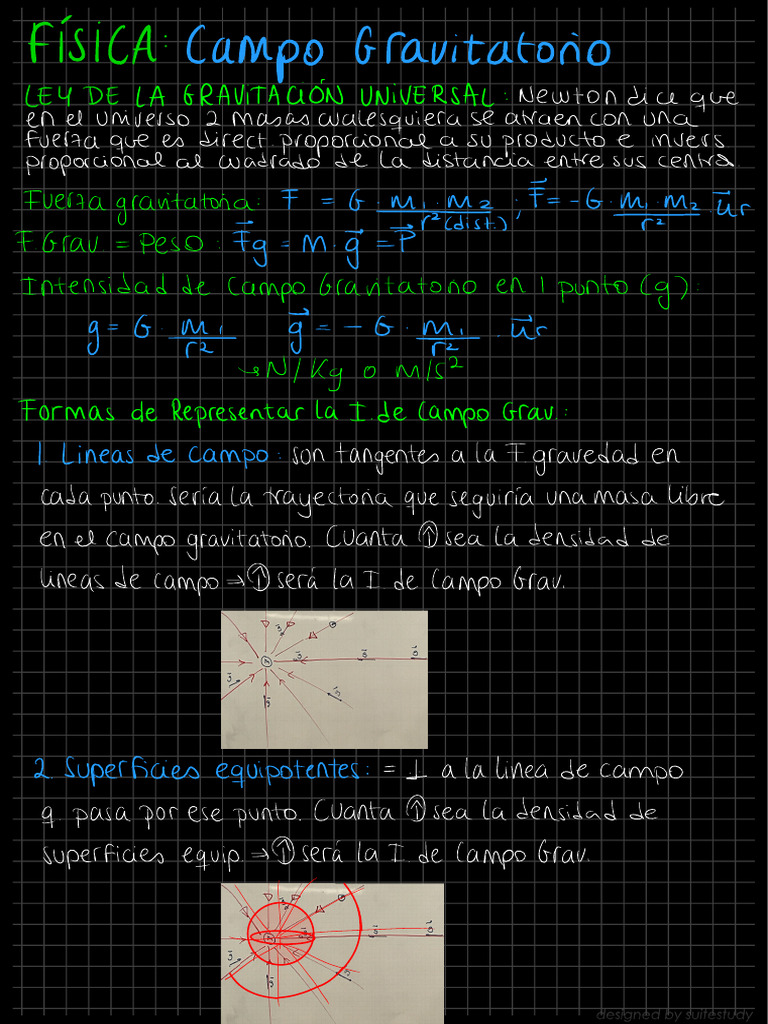 FÍSICA: Campo Gravitatorio
LEY DE LA GRAVITACIÓN UNIVERSAL: Newton dice que
en el universo 2 masas cualesquiera se atraen con una
fuerza que es direct. proporcional a su producto e invers
proporcional al cuadrado de la distancia entre sus centra
Fuerza gravitatoria: F = G · m₁ · m₂ / r² (dist.) ; F⃗ = -G · m₁ · m₂ / r² · u⃗r
F Grav = Peso : F⃗g = m · g⃗ = P⃗
Intensidad de Campo Gravitatorio en 1 punto (g):
g = G · m₁ / r² g⃗ = - G · m₁ / r² · u⃗r
↳ N/Kg o m/s²
Formas de Representar la I. de Campo Grav.:
1 Lineas de Campo: son tangentes a la F gravedad en
cada punto. Sería la trayectoria que seguiría una masa libre
en el campo gravitatorio. Cuanta ↑ sea la densidad de
lineas de campo → ↑ será la I de Campo Grav.
2 Superficies equipotentes: = ⊥ a la linea de campo
q. pasa por ese punto. Cuanta ↑ sea la densidad de
superficies equip → ↑ será la I. de Campo Grav.
designed by suitestudy